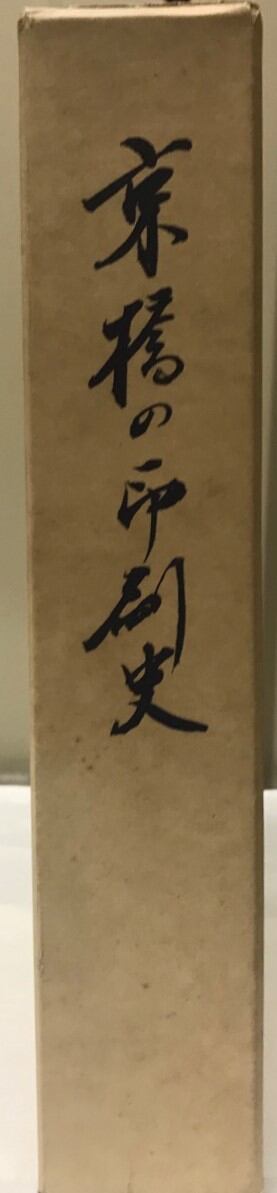 京橋の印刷史